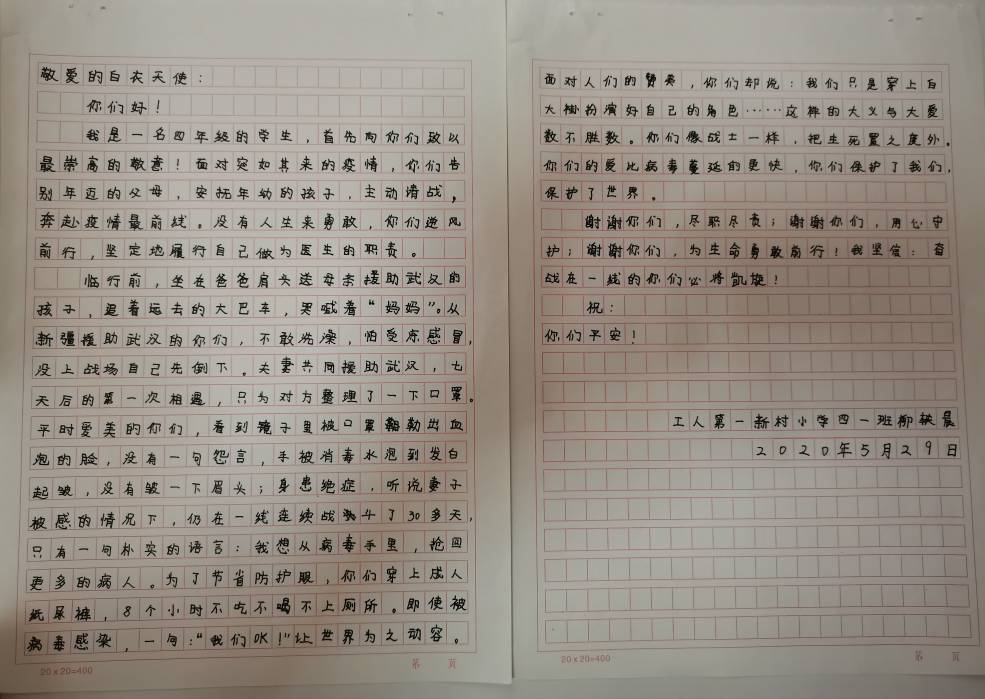 敬爱的白衣天使：
你们好！
我是一名四年级的学生，首先向你们致以
最崇高的敬意！面对突如其来的疫情，你们告
别年迈的父母，安抚年幼的孩子，主动请战，
奔赴疫情最前线。没有人生来勇敢，你们逆风
前行，坚定地履行自己做为医生的职责。
临行前，坐在爸爸肩头送母亲援助武汉的
孩子，追着远去的大巴车，哭喊着“妈妈”。从
新疆援助武汉的你们，不敢洗澡，怕受冻感冒，
没上战场自己先倒下。夫妻共同援助武汉，七
天后的第一次相遇，只为对方整理了一下口罩。
平时爱美的你们，看到镜子里被口罩勒出血
泡的脸，没有一句怨言，手被消毒水泡到发白
起皱，没有皱一下眉头；身患绝症，听说妻子
被感的情况下，仍在一线连续战斗了30多天，
只有一句朴实的语言：我想从病毒手里，抢回
更多的病人。为了节省防护服，你们穿上成人
纸尿裤，8个小时不吃不喝不上厕所。即使被
病毒感染，一句：“我们OK！”让世界为之动容。
20×20=400
第 页
面对人们的赞美，你们却说：我们只是穿上白
大褂扮演好自己的角色……这样的大义与大爱
数不胜数。你们像战士一样，把生死置之度外。
你们的爱比病毒蔓延的更快，你们保护了我们，
保护了世界。
谢谢你们，尽职尽责；谢谢你们，用心守
护；谢谢你们，为生命勇敢前行！我坚信：奋
战在一线的你们必将凯旋！
祝：
你们平安！
工人第一新村小学四一班柳轶晨
2020年5月29日
20×20=400
第 页